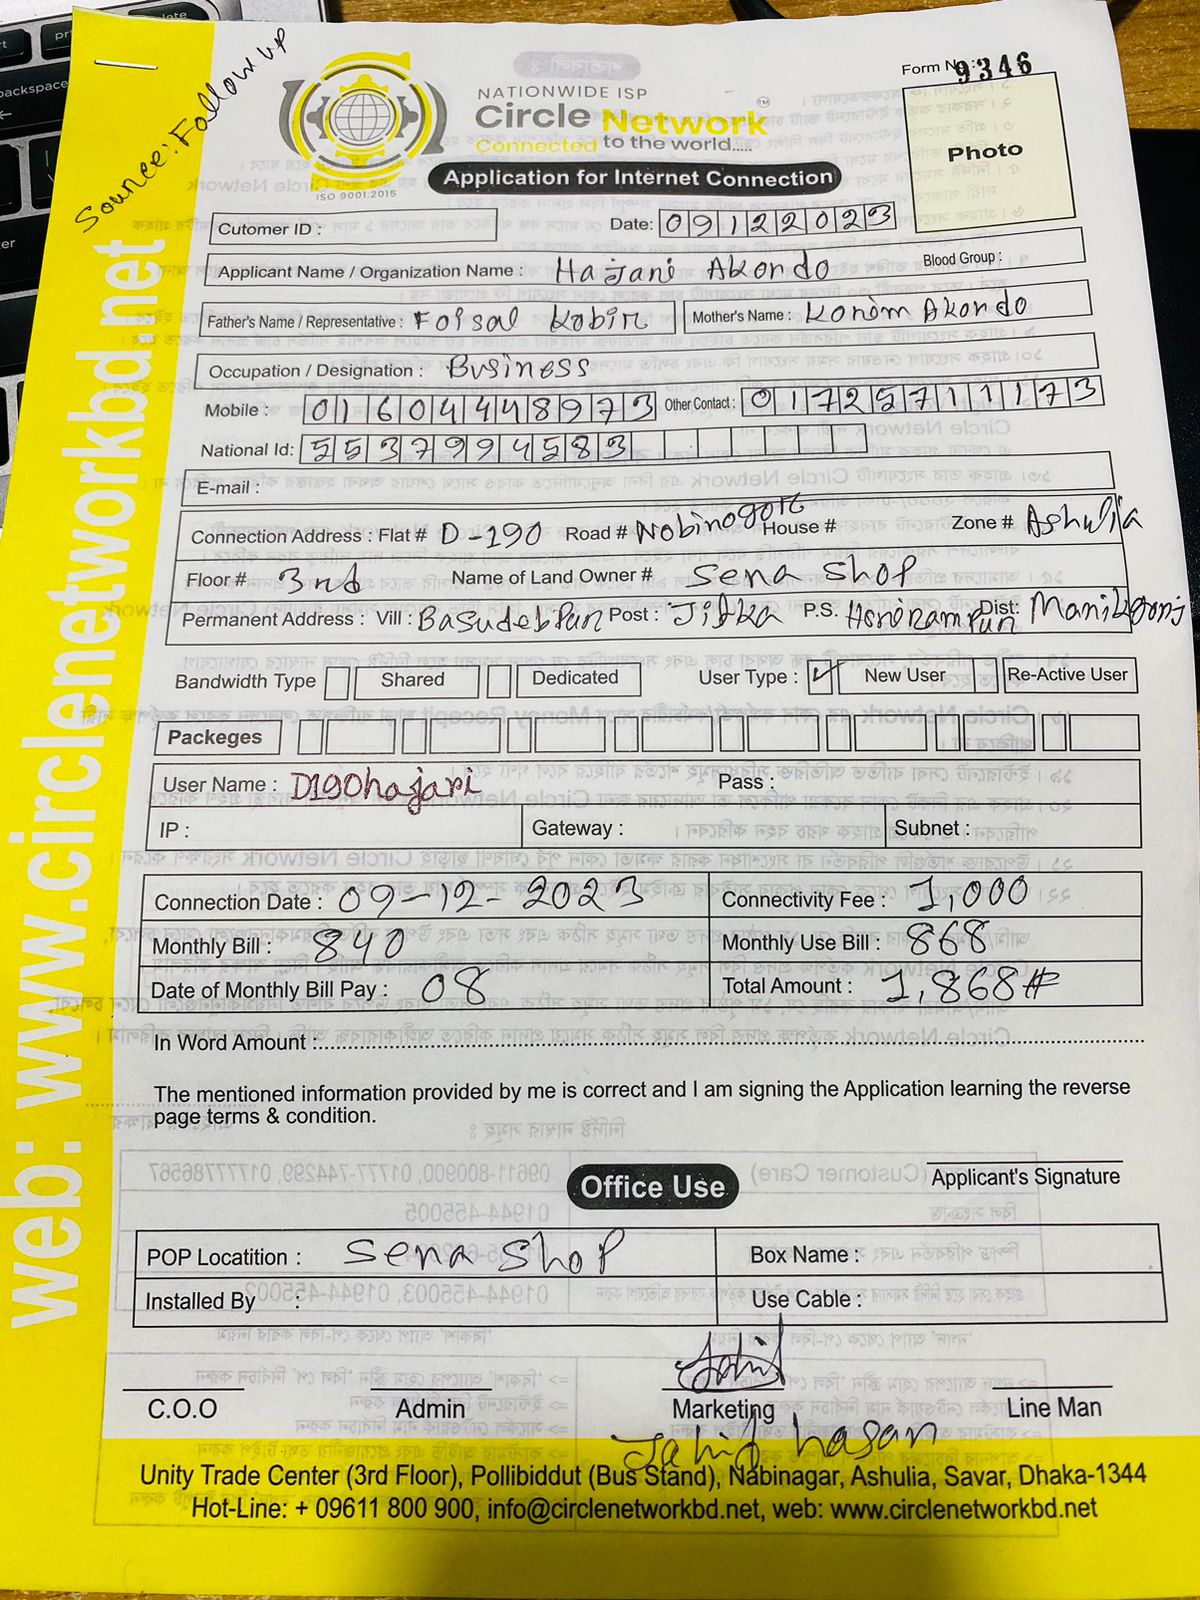 Source: Follow up
Form No.: 9346
NATIONWIDE ISP
Circle Network™
Connected to the world.....
ISO 9001:2015
Application for Internet Connection
Photo
Cutomer ID :
Date: 09122023
Applicant Name / Organization Name : Hajani Akondo
Blood Group :
Father's Name / Representative : Foisal Kobir
Mother's Name : Konom Akondo
Occupation / Designation : Business
Mobile : 01604448973 Other Contact : 01725711173
National Id: 5537994583
E-mail :
Connection Address : Flat # D-190 Road # Nobinogort House # Zone # Ashulia
Floor # 3rd Name of Land Owner # Sena Shop
Permanent Address : Vill : Basudebpur Post : Jitka P.S. Horirampur Dist: Manikgonj
Bandwidth Type Shared Dedicated User Type : ✓ New User Re-Active User
Packeges
User Name : D190hajari Pass :
IP : Gateway : Subnet :
Connection Date : 09-12-2023 Connectivity Fee : 1,000
Monthly Bill : 840 Monthly Use Bill : 868
Date of Monthly Bill Pay : 08 Total Amount : 1,868#
In Word Amount :
The mentioned information provided by me is correct and I am signing the Application learning the reverse
page terms & condition.
Applicant's Signature
Office Use
POP Locatition : Sena Shop Box Name :
Installed By : Use Cable :
C.O.O Admin Marketing Line Man
Jahid hasan
Unity Trade Center (3rd Floor), Pollibiddut (Bus Stand), Nabinagar, Ashulia, Savar, Dhaka-1344
Hot-Line: + 09611 800 900, info@circlenetworkbd.net, web: www.circlenetworkbd.net
web: www.circlenetworkbd.net